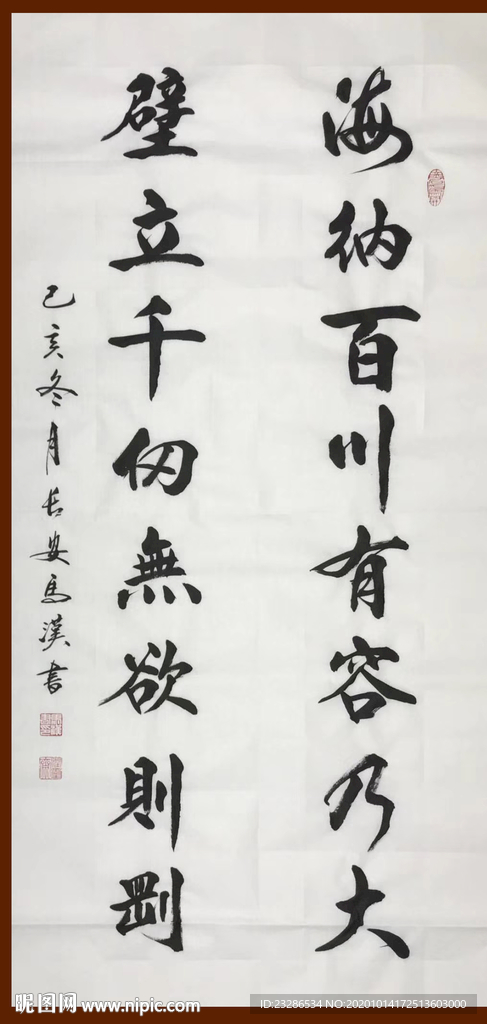 海纳百川有容乃大
壁立千仞無欲則剛
己亥冬月长安马漢书
昵图网 www.nipic.com
ID:23286534 NO:20201014172513603000